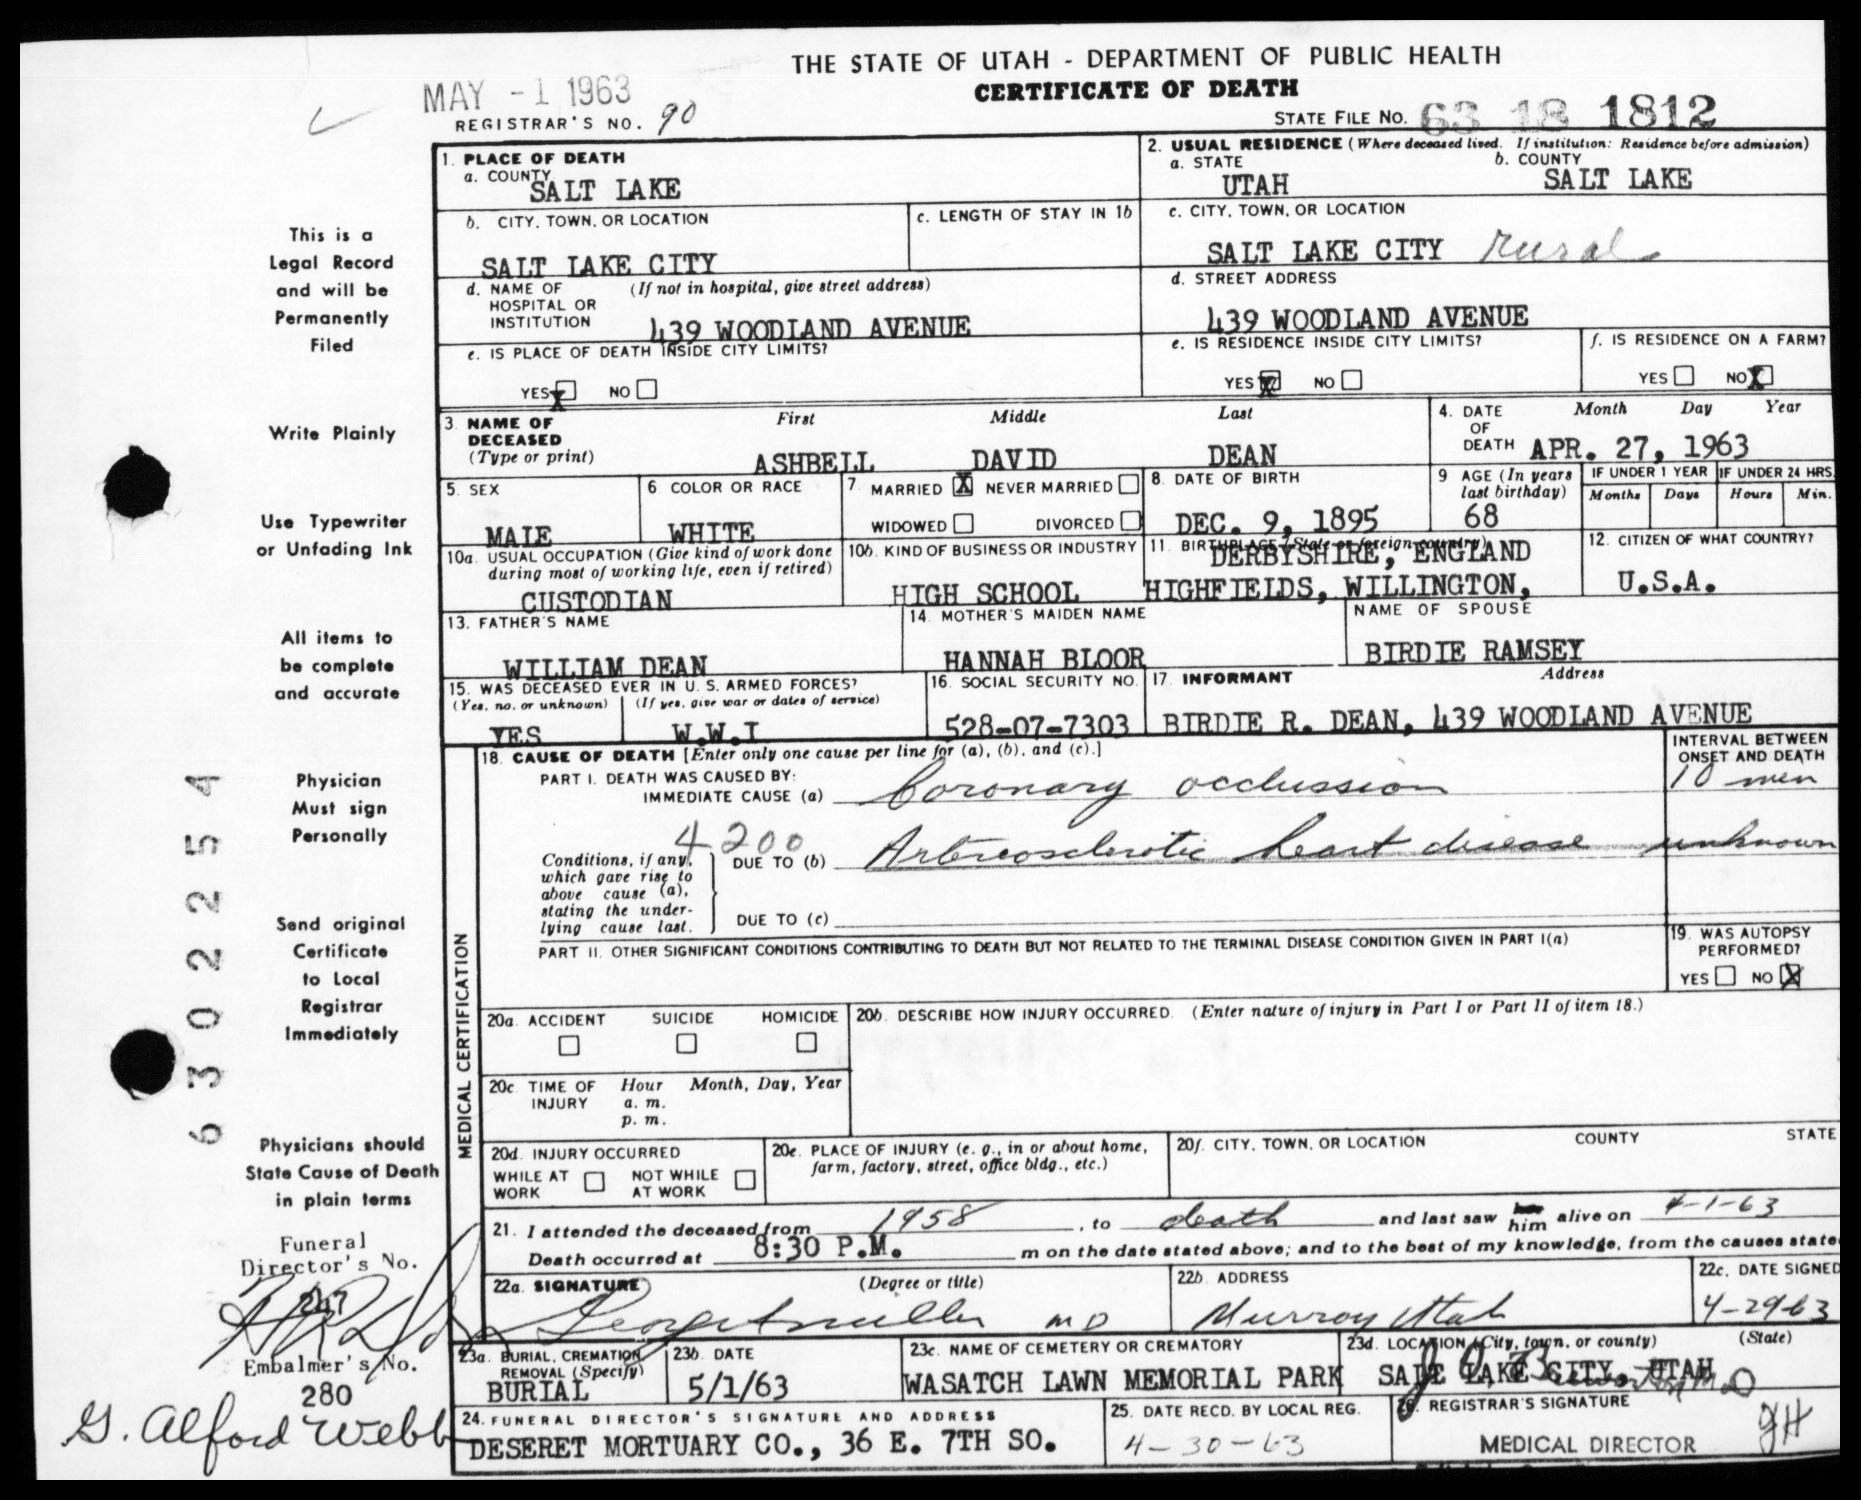 THE STATE OF UTAH - DEPARTMENT OF PUBLIC HEALTH
CERTIFICATE OF DEATH
MAY -1 1963
REGISTRAR'S NO. 90
STATE FILE NO. 63 18 1812
This is a
Legal Record
and will be
Permanently
Filed
Write Plainly
Use Typewriter
or Unfading Ink
All items to
be complete
and accurate
Physician
Must sign
Personally
Send original
Certificate
to Local
Registrar
Immediately
Physicians should
State Cause of Death
in plain terms
Funeral
Director's No.
247
Embalmer's No.
280
G. Alford Webb
6302254
1. PLACE OF DEATH
a. COUNTY
SALT LAKE
2. USUAL RESIDENCE (Where deceased lived. If institution: Residence before admission)
a. STATE
UTAH
b. COUNTY
SALT LAKE
b. CITY, TOWN, OR LOCATION
SALT LAKE CITY
c. LENGTH OF STAY IN 1b
c. CITY, TOWN, OR LOCATION
SALT LAKE CITY rural
d. NAME OF HOSPITAL OR INSTITUTION (If not in hospital, give street address)
439 WOODLAND AVENUE
d. STREET ADDRESS
439 WOODLAND AVENUE
e. IS PLACE OF DEATH INSIDE CITY LIMITS?
YES X NO
e. IS RESIDENCE INSIDE CITY LIMITS?
YES X NO
f. IS RESIDENCE ON A FARM?
YES NO X
3. NAME OF DECEASED (Type or print)
First Middle Last
ASHBELL DAVID DEAN
4. DATE OF DEATH
Month Day Year
APR. 27, 1963
5. SEX
MALE
6. COLOR OR RACE
WHITE
7. MARRIED X NEVER MARRIED
WIDOWED DIVORCED
8. DATE OF BIRTH
DEC. 9, 1895
9 AGE (In years last birthday)
68
IF UNDER 1 YEAR
Months Days
IF UNDER 24 HRS.
Hours Min.
10a. USUAL OCCUPATION (Give kind of work done during most of working life, even if retired)
CUSTODIAN
10b. KIND OF BUSINESS OR INDUSTRY
HIGH SCHOOL
11. BIRTHPLACE (State or foreign country)
DERBYSHIRE, ENGLAND
HIGHFIELDS, WILLINGTON,
12. CITIZEN OF WHAT COUNTRY?
U.S.A.
13. FATHER'S NAME
WILLIAM DEAN
14. MOTHER'S MAIDEN NAME
HANNAH BLOOR
NAME OF SPOUSE
BIRDIE RAMSEY
15. WAS DECEASED EVER IN U. S. ARMED FORCES?
(Yes, no, or unknown) (If yes, give war or dates of service)
YES W.W.I
16. SOCIAL SECURITY NO.
528-07-7303
17. INFORMANT Address
BIRDIE R. DEAN, 439 WOODLAND AVENUE
MEDICAL CERTIFICATION
18. CAUSE OF DEATH [Enter only one cause per line for (a), (b), and (c).]
INTERVAL BETWEEN ONSET AND DEATH
PART I. DEATH WAS CAUSED BY:
IMMEDIATE CAUSE (a) Coronary occlussion 10 men
4200
Conditions, if any, which gave rise to above cause (a), stating the underlying cause last.
DUE TO (b) Artereosclerotic heart disease unknown
DUE TO (c)
PART II. OTHER SIGNIFICANT CONDITIONS CONTRIBUTING TO DEATH BUT NOT RELATED TO THE TERMINAL DISEASE CONDITION GIVEN IN PART I(a)
19. WAS AUTOPSY PERFORMED?
YES NO X
20a. ACCIDENT SUICIDE HOMICIDE
20b. DESCRIBE HOW INJURY OCCURRED. (Enter nature of injury in Part I or Part II of item 18.)
20c. TIME OF INJURY
Hour Month, Day, Year
a. m.
p. m.
20d. INJURY OCCURRED
WHILE AT WORK NOT WHILE AT WORK
20e. PLACE OF INJURY (e. g., in or about home, farm, factory, street, office bldg., etc.)
20f. CITY, TOWN, OR LOCATION COUNTY STATE
21. I attended the deceased from 1958, to death and last saw him alive on 4-1-63
Death occurred at 8:30 P.M. m on the date stated above; and to the best of my knowledge, from the causes state
22a. SIGNATURE (Degree or title)
MD
22b. ADDRESS
Murray Utah
22c. DATE SIGNED
4-29-63
23a. BURIAL, CREMATION, REMOVAL (Specify)
BURIAL
23b. DATE
5/1/63
23c. NAME OF CEMETERY OR CREMATORY
WASATCH LAWN MEMORIAL PARK
23d. LOCATION (City, town, or county) (State)
SALT LAKE CITY, UTAH
24. FUNERAL DIRECTOR'S SIGNATURE AND ADDRESS
DESERET MORTUARY CO., 36 E. 7TH SO.
25. DATE RECD. BY LOCAL REG.
4-30-63
26. REGISTRAR'S SIGNATURE
MEDICAL DIRECTOR